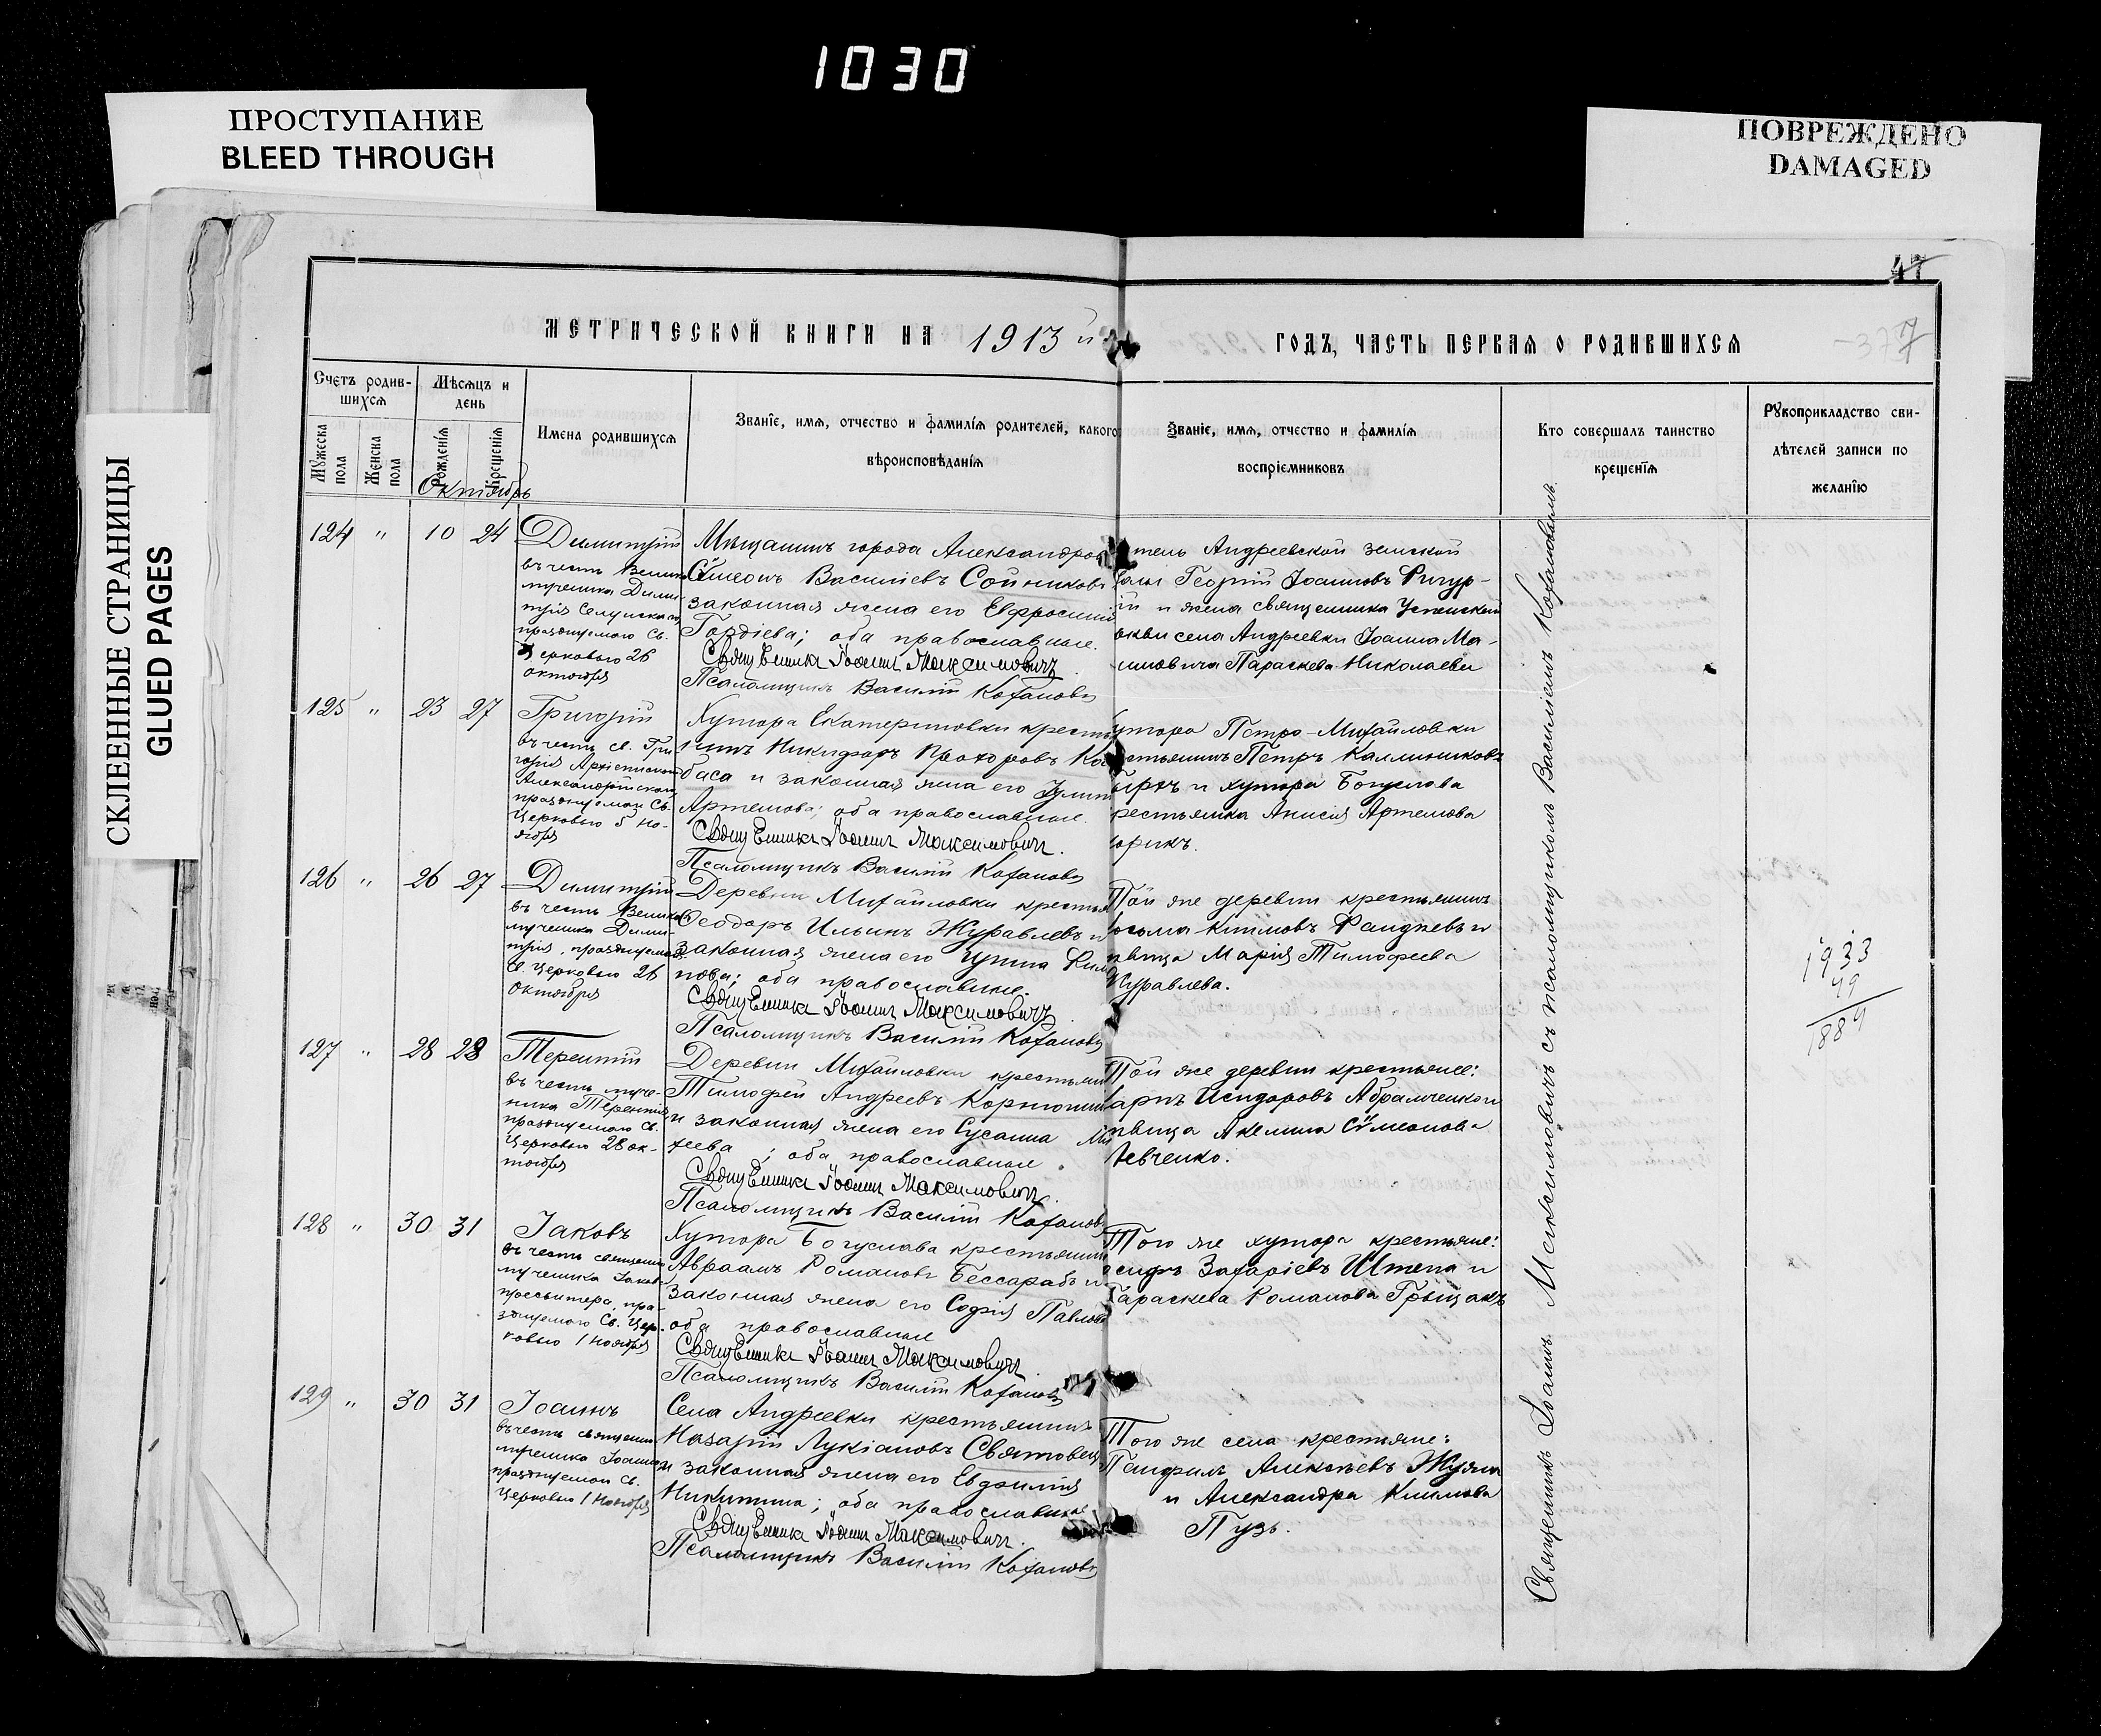 1030
ПРОСТУПАНИЕ
BLEED THROUGH
ПОВРЕЖДЕНО
DAMAGED
СКЛЕЕННЫЕ СТРАНИЦЫ
GLUED PAGES
47
МЕТРИЧЕСКОЙ КНИГИ НА 1913 й ГОДЪ, ЧАСТЬ ПЕРВАЯ О РОДИВШИХСЯ
7
Счетъ родив-
шихся
Мужеска пола
Женска пола
Мѣсяцъ и
день
Рожденія
Крещенія
Имена родившихся
Званіе, имя, отчество и фамилія родителей, какого
вѣроисповѣданія
Званіе, имя, отчество и фамилія
воспріемниковъ
Кто совершалъ таинство
крещенія
Рукоприкладство сви-
дѣтелей записи по
желанію
Октябрь
124 " 10 24
Димитрій
въ честь Велико
мученика Дими-
трія Селунскаго
празднуемаго Св.
Церковью 26
октября
Мѣщанинъ города Александров
Сѵмеонъ Василіевъ Сойниковъ
законная жена его Евфросинія
Гордіева; оба православные.
Священникъ Іоаннъ Максимовичъ.
Псаломщикъ Василій Кохановъ
тель Андреевской земской
Георгій Іоанновъ Ригур-
ій и жена священника Успенской
ркви села Андреевки Іоанна Ма-
симовича Параскева Николаева
125 " 23 27
Григорій
въ честь св. Гри
горія Архіепископа
Александрійскаго
празднуемаго Св.
Церковью 5 но-
ября
Хутора Екатериновки крестья
нинъ Никифоръ Прохоровъ Ко
баса и законная жена его Іулит
Артемова; оба православные.
Священникъ Іоаннъ Максимовичъ.
Псаломщикъ Василій Кохановъ
утора Петро-Михайловки
стьянинъ Петръ Каллиниковъ
и хутора Богуслава
рестьянка Анисія Артемова
126 " 26 27
Димитрій
въ честь Велико
мученика Дими-
трія, празднуемаго
Св. Церковью 26
октября
Деревни Михайловки крестья
Ѳеодоръ Ильинъ Журавлевъ и
законная жена его Іулита Кли
нова; оба православные.
Священникъ Іоаннъ Максимовичъ.
Псаломщикъ Василій Кохановъ
Той же деревни крестьянинъ
осьма Климовъ и
ѣвица Марія Тимофеева
Журавлева.
1933
49
1884
127 " 28 28
Терентій
въ честь муче-
ника Терентія
празднуемаго Св.
Церковью 28 ок-
тября
Деревни Михайловки крестьянин
Тимофей Андреевъ
и законная жена его Сусанна Ма
феева; оба православные.
Священникъ Іоаннъ Максимовичъ.
Псаломщикъ Василій Кохановъ
Той же деревни крестьяне:
арпъ Исидоровъ Абрамченко и
ѣвица Акелина Сѵмеонова
Левченко.
128 " 30 31
Іаковъ
въ честь священно
мученика Іакова
пресвитера, пра-
зднуемаго Св. Цер-
ковью 1 ноября
Хутора Богуслава крестьянинъ
Авраамъ Романовъ Бессарабъ и
законная жена его Софія Павлова
оба православные
Священникъ Іоаннъ Максимовичъ.
Псаломщикъ Василій Кохановъ
Того же хутора крестьяне:
осифъ Захаріевъ Штепа и
Параскева Романова Грыцакъ
129 " 30 31
Іоаннъ
въ честь священно
мученика Іоанна
празднуемаго Св.
Церковью 1 ноября
Села Андреевки крестьянинъ
Назарій Лукіановъ Святовецъ
и законная жена его Евфимія
Никитина; оба православные.
Священникъ Іоаннъ Максимовичъ.
Псаломщикъ Василій Кохановъ
Того же села крестьяне:
Панфилъ Алексѣевъ Жужа
и Александра Климова
Пузь.
Священникъ Іоаннъ Максимовичъ съ псаломщикомъ Василіемъ Кохановымъ.